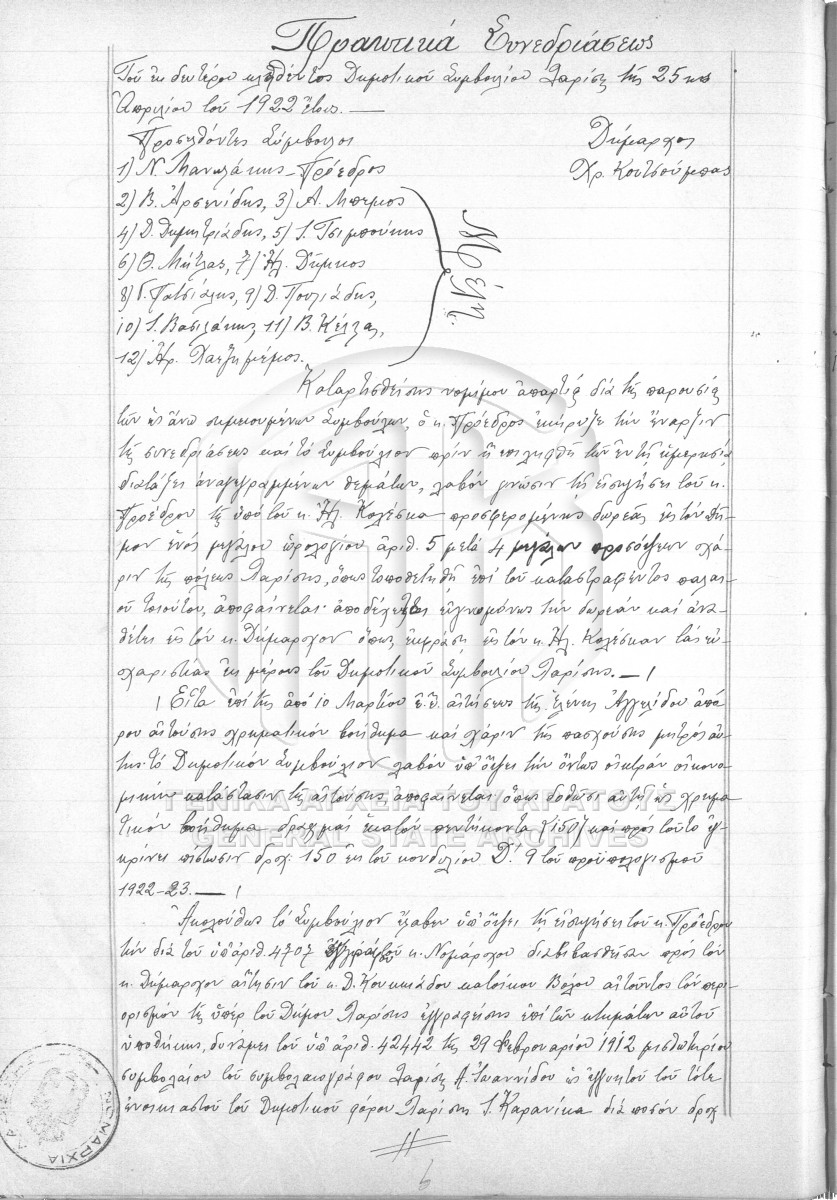 Πρακτικά Συνεδριάσεως
Τοῦ ἐκ δευτέρου κληθέντος Δημοτικοῦ Συμβουλίου Λαρίσης τῆς 25ης
Ἀπριλίου τοῦ 1922 ἔτους. —
Προσελθόντες Σύμβουλοι
Δήμαρχος
1) Ν. Μανωλάκης - Πρόεδρος
Χρ. Κουτσούμπας
2) Β. Ἀρσενίδης, 3) Α. Μπεμος
4) Δ. Δημητριάδης, 5) Ι. Τσιμπούκης
6) Θ. Μήτλας, 7) Ἠλ. Δήμκος
8) Γ. Πατσιάλης, 9) Δ. Πουλιάδης,
10) Ι. Βασιλάκης 11) Β. Κέλλας,
12) Ἀρ. Χατζημέμος.
Μέλη.
Καταρτισθείσης νομίμου ἀπαρτίας διά τῆς παρουσίας
τῶν ὡς ἄνω σημειουμένων Συμβούλων, ὁ κ. Πρόεδρος ἐκήρυξε τήν ἔναρξιν
τῆς συνεδριάσεως καί τό Συμβούλιον πρίν ἤ ἐπιληφθῇ τῶν ἐν τῇ ἡμερησίᾳ
διατάξει ἀναγεγραμμένων θεμάτων, λαβόν γνῶσιν τῇ εἰσηγήσει τοῦ κ.
Προέδρου τῆς ὑπό τοῦ κ. Ἠλ. Κολέσκα προσφερομένης δωρεᾶς εἰς τόν Δῆ-
μον ἑνός μεγάλου ὡρολογίου ἀριθ. 5 μετά 4 μεγάλων προσόψεων χά-
ριν τῆς πόλεως Λαρίσης, ὅπως τοποθετηθῇ ἐπί τοῦ καταστραφέντος παλαι-
οῦ τοιούτου, ἀποφαίνεται· ἀποδέχεται εὐγνωμόνως τήν δωρεάν καί ἀνα-
θέτει εἰς τόν κ. Δήμαρχον ὅπως ἐκφράσῃ εἰς τόν κ. Ἠλ. Κολέσκαν τάς εὐ-
χαριστίας ἐκ μέρους τοῦ Δημοτικοῦ Συμβουλίου Λαρίσης. — /
/ Εἶτα ἐπί τῆς ἀπό 10 Μαρτίου ἐ. ἔ. αἰτήσεως τῆς Ἑλένης Ἀγγελίδου ἀπό-
ρου αἰτούσης χρηματικόν βοήθημα καί χάριν τῆς πασχούσης μητρός αὐ-
τῆς· τό Δημοτικόν Συμβούλιον λαβόν ὑπ' ὄψει τήν ὄντως οἰκτράν οἰκονο-
μικήν κατάστασιν τῆς αἰτούσης ἀποφαίνεται· ὅπως δοθῶσι αὐτῇ ὡς χρημα-
τικόν βοήθημα δραχμαί ἑκατόν πεντήκοντα (150) καί πρός τοῦτο ἐγ-
κρίνει πίστωσιν δραχ. 150 ἐκ τοῦ κονδυλίου Δ. 9 τοῦ προϋπολογισμοῦ
1922-23. — /
Ἀκολούθως τό Συμβούλιον ἔλαβεν ὑπ' ὄψει τῇ εἰσηγήσει τοῦ κ. Προέδρου
τήν διά τοῦ ὑπ' ἀριθ. 4707 ἐγγράφου κ. Νομάρχου διαβιβασθεῖσαν πρός τόν
κ. Δήμαρχον αἴτησιν τοῦ κ. Δ. Κουκιάδου κατοίκου Βόλου αἰτοῦντος τόν περι-
ορισμόν τῆς ὑπέρ τοῦ Δήμου Λαρίσης ἐγγραφείσης ἐπί τῶν κτημάτων αὐτοῦ
ὑποθήκης, δυνάμει τοῦ ὑπ' ἀριθ. 42442 τῆς 29 Φεβρουαρίου 1912 μισθωτηρίου
συμβολαίου τοῦ συμβολαιογράφου Λαρίσης Α. Ἰωαννίδου ὡς ἐγγυητοῦ τοῦ τότε
ἐνοικιαστοῦ τοῦ Δημοτικοῦ φόρου Λαρίσης Ι. Καρανίκα διά ποσόν δραχ
ΓΕΝΙΚΑ ΑΡΧΕΙΑ ΤΟΥ ΚΡΑΤΟΥΣ
GENERAL STATE ARCHIVES
ΝΟΜΑΡΧΙΑ